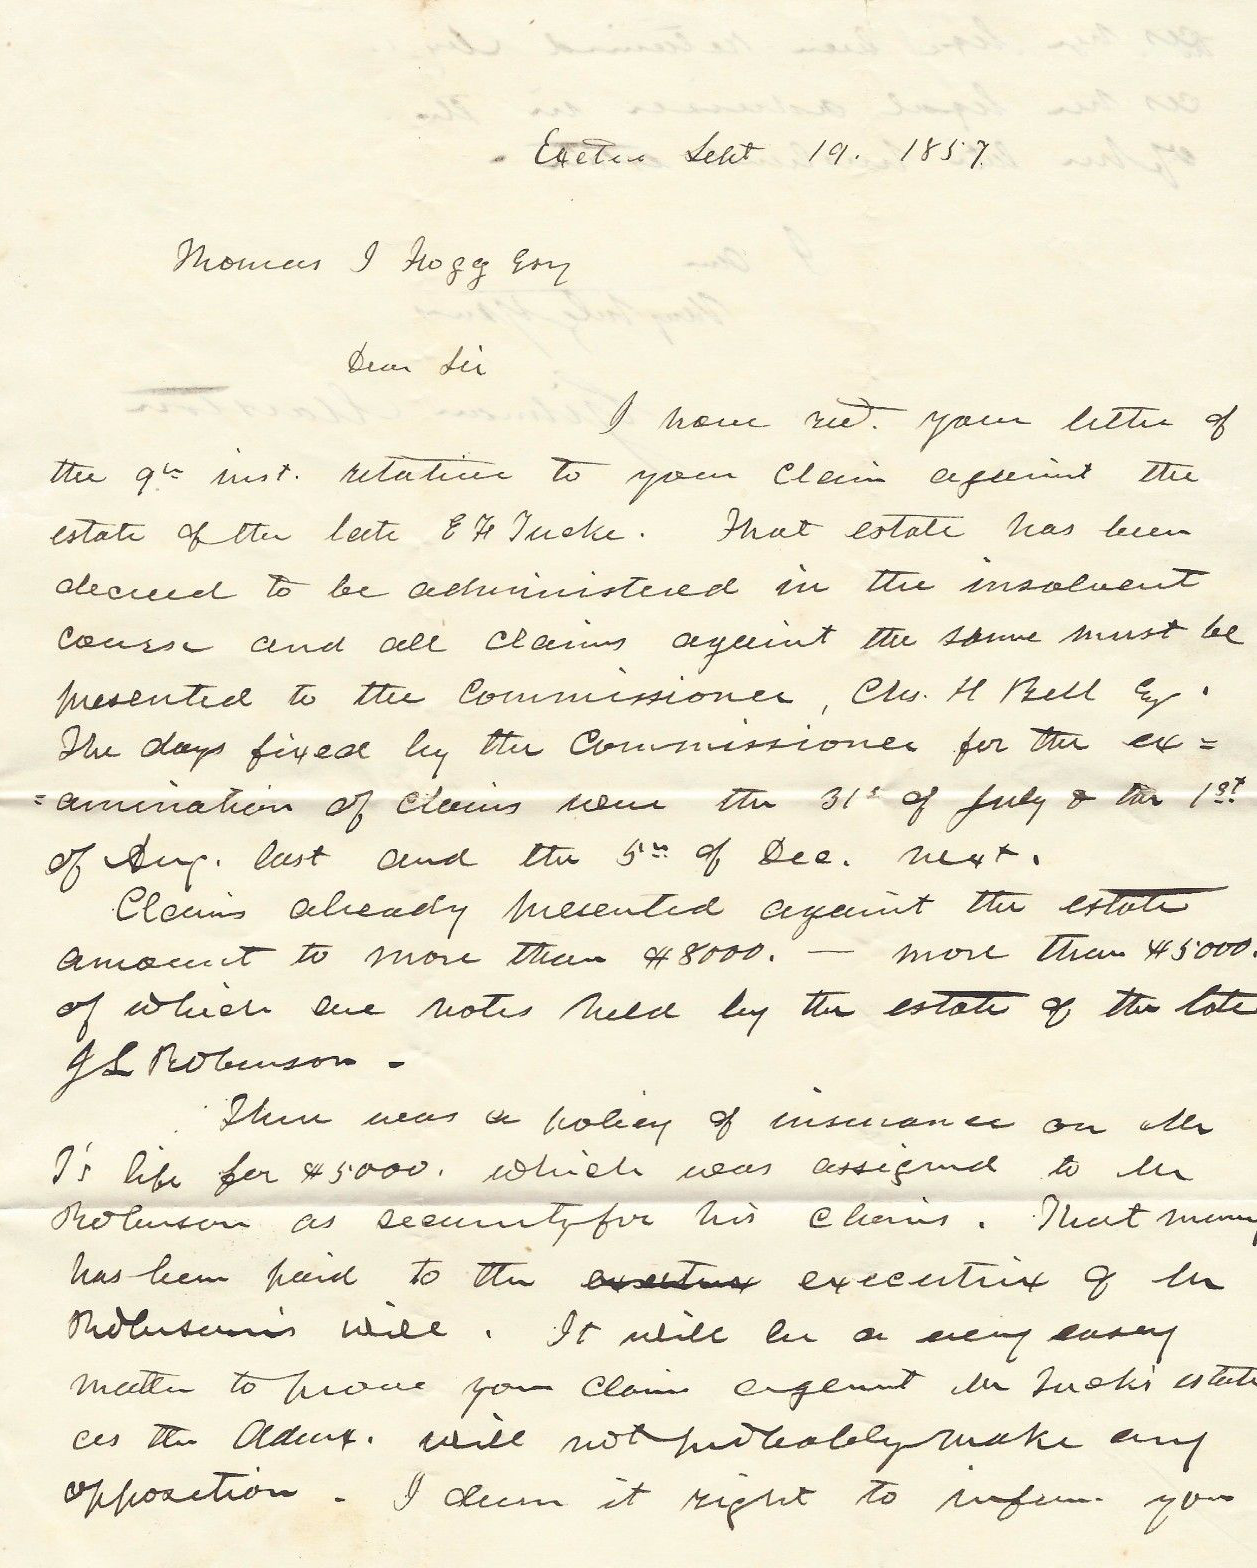 Exeter Sept 19. 1857.
Thomas J Hogg Esq
Dear Sir
I have recd. your letter of
the 9th inst. relative to your claim against the
estate of the late E F Tucke. That estate has been
decreed to be administered in the insolvent
course and all claims against the same must be
presented to the Commissioner, Chs. H Bell Esq.
The days fixed by the Commissioner for the ex=
=amination of claims were the 31st of July & the 1st
of Aug. last and the 5th of Dec. next.
Claims already presented against the estate
amount to more than $8000. — more than $5000.
of which are notes held by the estate of the late
J L Robinson -
There was a policy of insurance on Mr
T's life for $5000. which was assigned to Mr
Robinson as security for his claims. That money
has been paid to the executrix of Mr
Robinson's will. It will be a very easy
matter to prove your claim against Mr Tuck's estate
as the Admx. will not probably make any
opposition. I deem it right to inform you